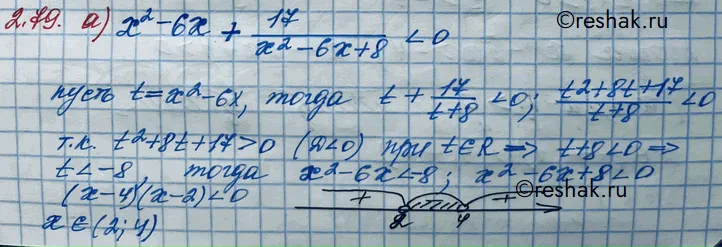 2.79. а) x² - 6x + 17/(x² - 6x + 8) < 0
©reshak.ru
пусть t = x² - 6x, тогда t + 17/(t+8) < 0; (t2 + 8t + 17)/(t+8) < 0
т.к. t² + 8t + 17 > 0 (D < 0) при t ∈ R => t + 8 < 0 =>
t < -8, тогда x² - 6x < -8; x² - 6x + 8 < 0
(x - 4)(x - 2) < 0 + 2 4 +
x ∈ (2; 4)
©reshak.ru